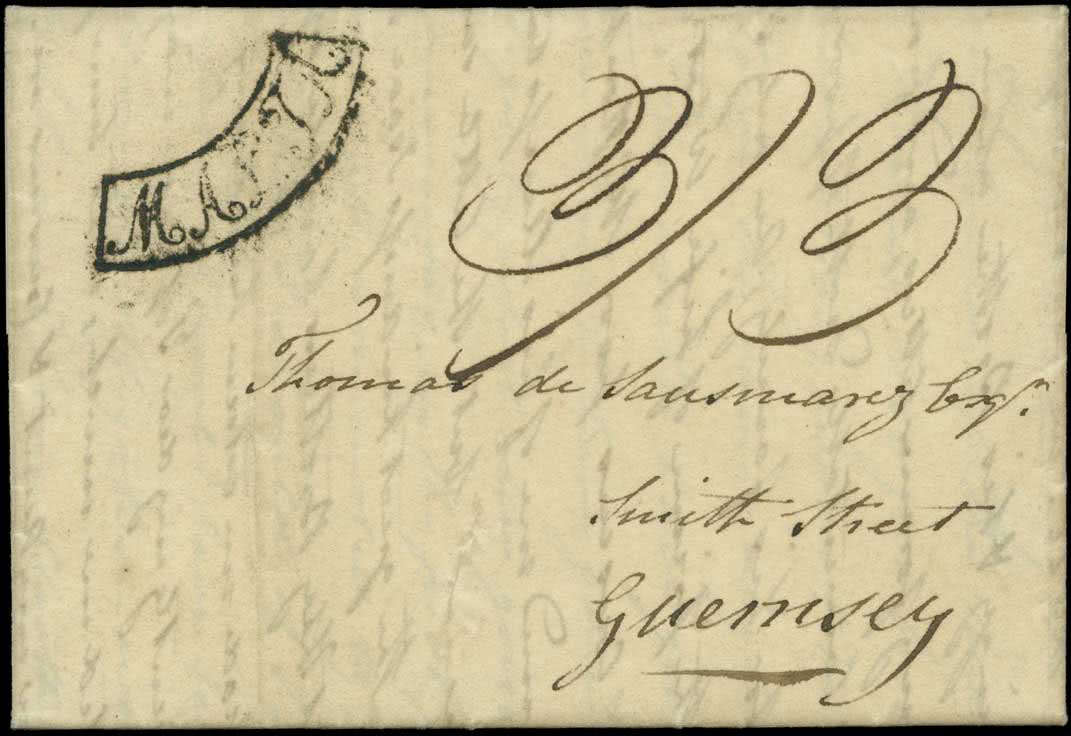 MALTA
3/3
Thomas de Sausmarez Esqr.
Smith Street
Guernsey